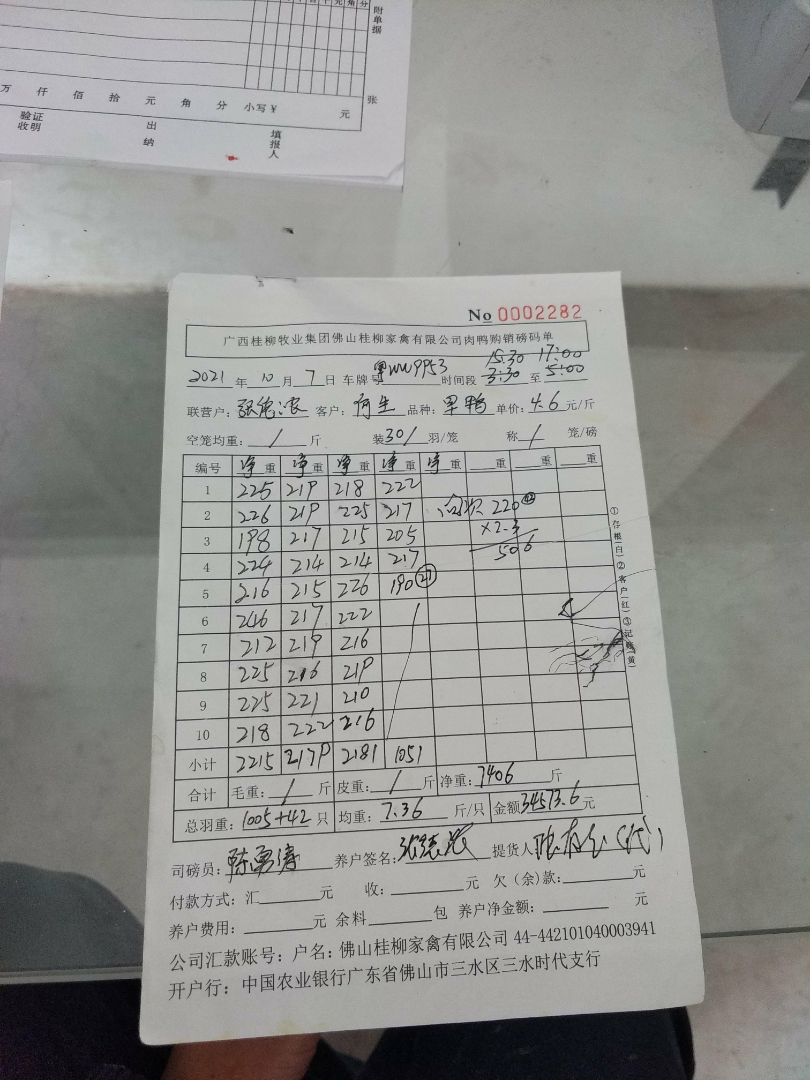 附单据
万 仟 佰 拾 元 角 分 小写¥ 元 张
验证收明 出纳 填报人
No 0002282
广西桂柳牧业集团佛山桂柳家禽有限公司肉鸭购销磅码单
15:30 17:00
2021 年 10 月 7 日 车牌号 9953 时间段 3:30 至 5:00
联营户: 客户: 何生 品种: 单价: 4.6 元/斤
空笼均重: / 斤 装 30/ 羽/笼 称 / 笼/磅
编号 净重 净重 净重 净重 净重 重 重 重
1 225 219 218 222
2 226 219 225 217 220
3 198 217 215 205 ×2.3
4 224 214 214 217 506
5 216 215 226 190 27
6 246 217 222
7 212 219 216
8 225 216 219
9 225 221 210
10 218 222 216
小计 2215 2179 2181 1051
合计 毛重: / 斤 皮重: / 斤 净重: 7406 斤
总羽重: 1005+42 只 均重: 7.36 斤/只 金额 34573.6 元
司磅员: 陈勇涛 养户签名: 提货人
付款方式: 汇 元 收: 元 欠(余)款: 元
养户费用: 元 余料 包 养户净金额: 元
公司汇款账号: 户名: 佛山桂柳家禽有限公司 44-442101040003941
开户行: 中国农业银行广东省佛山市三水区三水时代支行
①存根(白)②客户(红)③记账(黄)